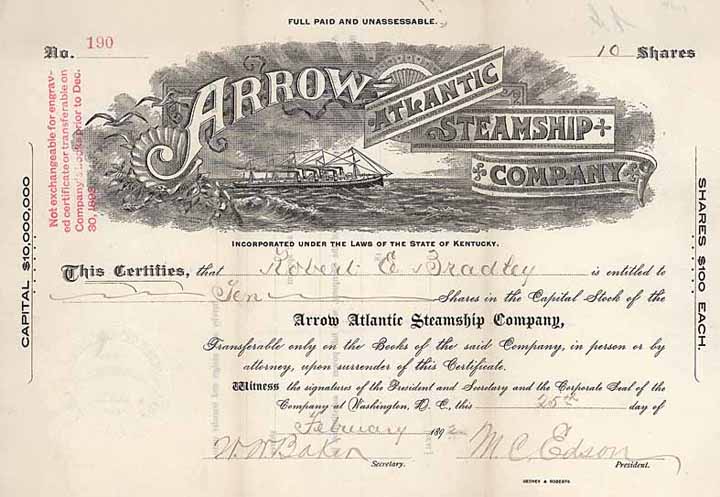 FULL PAID AND UNASSESSABLE.
No. 190
10 Shares
Not exchangeable for engrav-
ed certificate or transferable on
Company's books prior to Dec.
30, 1893
ARROW
ATLANTIC
STEAMSHIP
COMPANY
CAPITAL $10,000,000
SHARES $100 EACH.
INCORPORATED UNDER THE LAWS OF THE STATE OF KENTUCKY.
This Certifies, that Robert E. Bradley is entitled to
Ten Shares in the Capital Stock of the
Arrow Atlantic Steamship Company,
Transferable only on the Books of the said Company, in person or by
attorney, upon surrender of this Certificate.
Witness the signatures of the President and Secretary and the Corporate Seal of the
Company at Washington, D. C., this 25th day of
February 189
W. W. Baker M. C. Edson
Secretary. President.
GEDNEY & ROBERTS